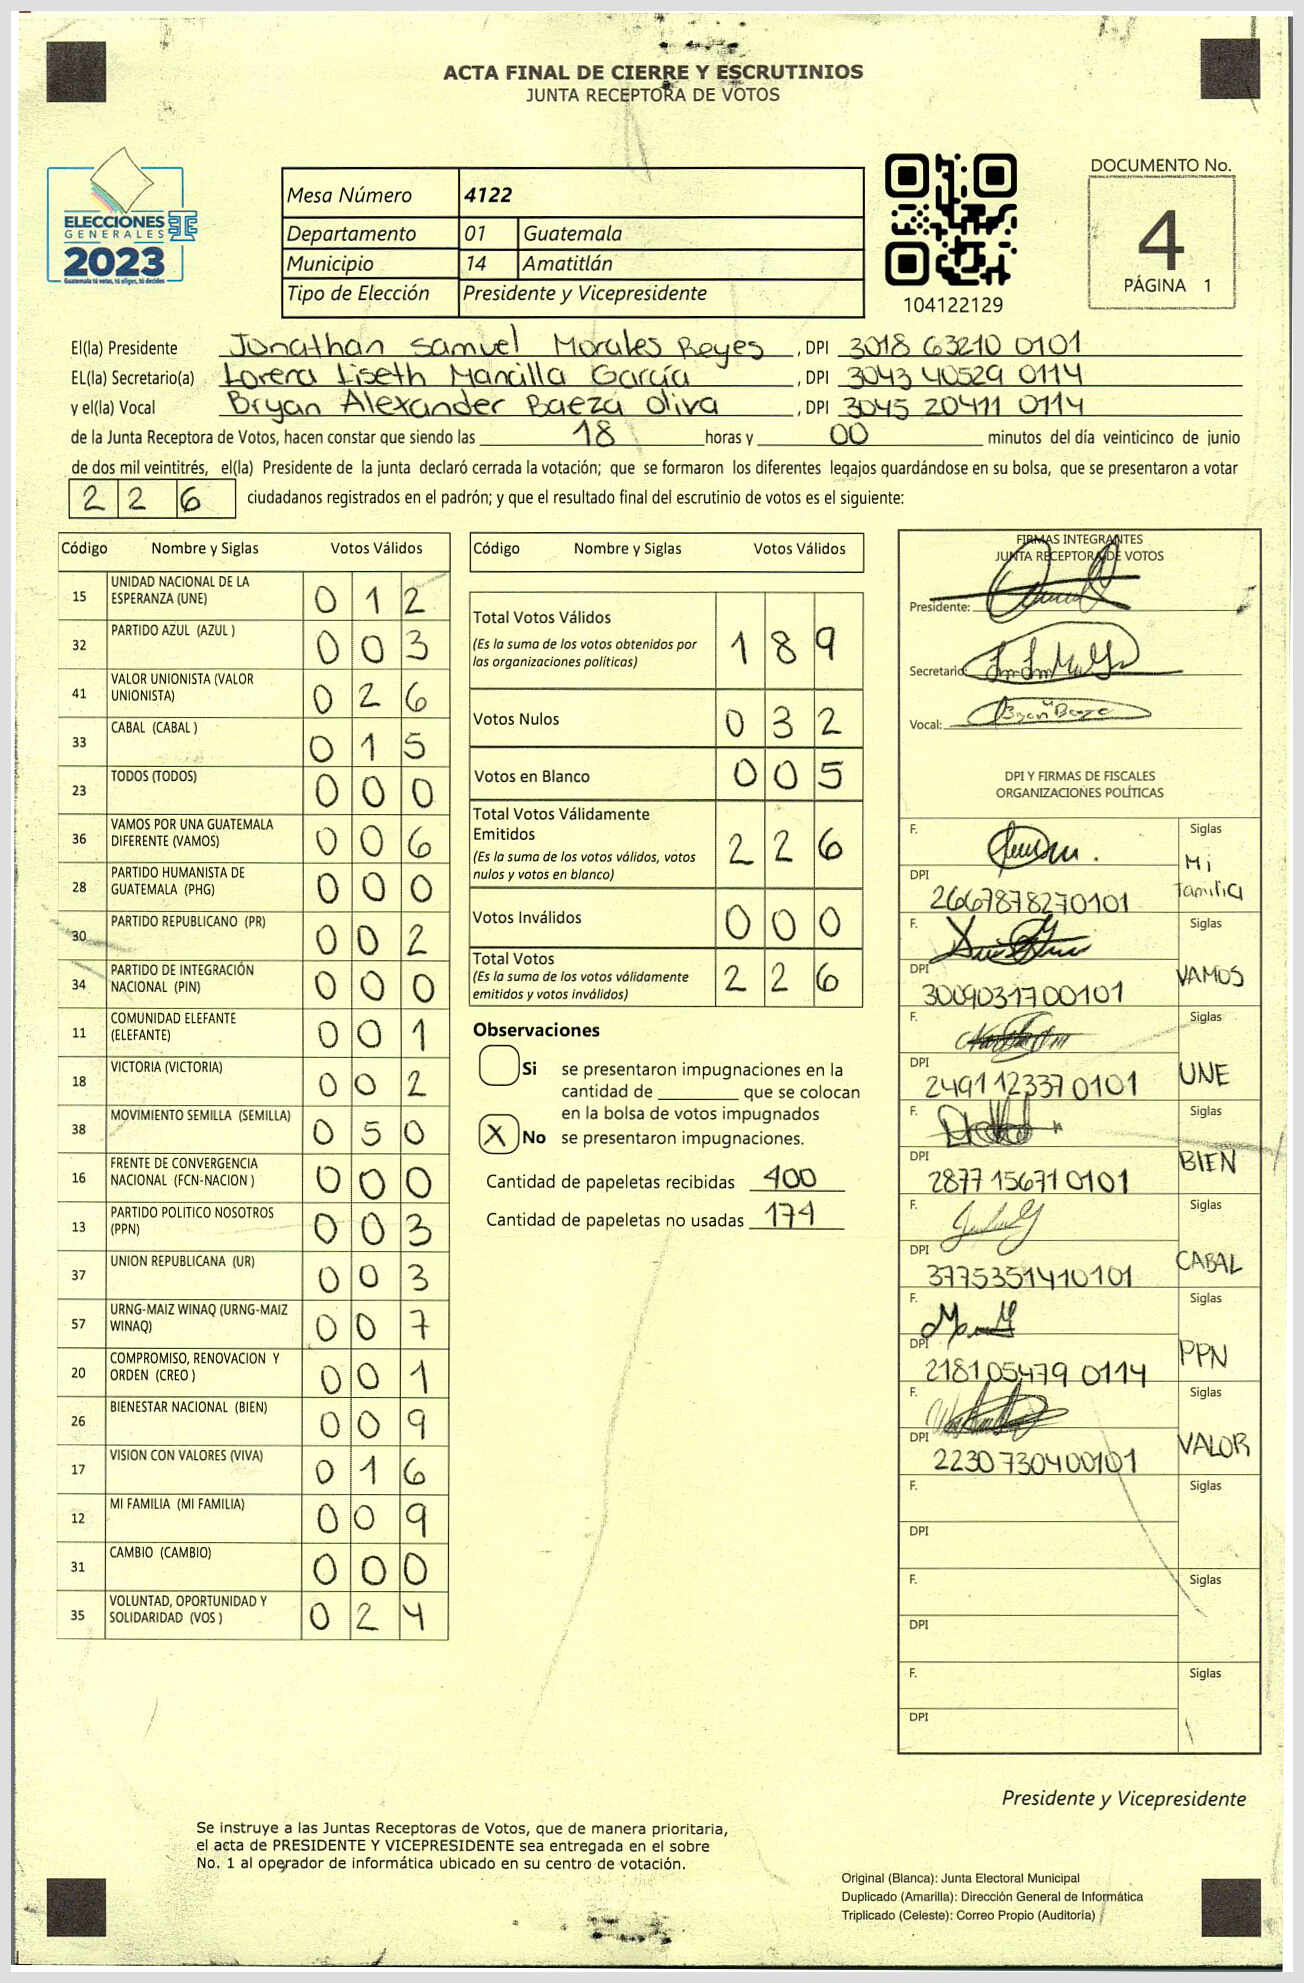 ACTA FINAL DE CIERRE Y ESCRUTINIOS
JUNTA RECEPTORA DE VOTOS
ELECCIONES
GENERALES
2023
Guatemala tú votas, tú eliges, tú decides
Mesa Número 4122
Departamento 01 Guatemala
Municipio 14 Amatitlán
Tipo de Elección Presidente y Vicepresidente
104122129
DOCUMENTO No.
4
PÁGINA 1
El(la) Presidente Jonathan Samuel Morales Reyes, DPI 3018 63210 0101
EL(la) Secretario(a) Lorena Liseth Mancilla García, DPI 3043 40529 0114
y el(la) Vocal Bryan Alexander Baeza Oliva, DPI 3045 20411 0114
de la Junta Receptora de Votos, hacen constar que siendo las 18 horas y 00 minutos del día veinticinco de junio
de dos mil veintitrés, el(la) Presidente de la junta declaró cerrada la votación; que se formaron los diferentes legajos guardándose en su bolsa, que se presentaron a votar
226 ciudadanos registrados en el padrón; y que el resultado final del escrutinio de votos es el siguiente:
Código Nombre y Siglas Votos Válidos
15 UNIDAD NACIONAL DE LA ESPERANZA (UNE) 0 1 2
32 PARTIDO AZUL (AZUL ) 0 0 3
41 VALOR UNIONISTA (VALOR UNIONISTA) 0 2 6
33 CABAL (CABAL ) 0 1 5
23 TODOS (TODOS) 0 0 0
36 VAMOS POR UNA GUATEMALA DIFERENTE (VAMOS) 0 0 6
28 PARTIDO HUMANISTA DE GUATEMALA (PHG) 0 0 0
30 PARTIDO REPUBLICANO (PR) 0 0 2
34 PARTIDO DE INTEGRACIÓN NACIONAL (PIN) 0 0 0
11 COMUNIDAD ELEFANTE (ELEFANTE) 0 0 1
18 VICTORIA (VICTORIA) 0 0 2
38 MOVIMIENTO SEMILLA (SEMILLA) 0 5 0
16 FRENTE DE CONVERGENCIA NACIONAL (FCN-NACION ) 0 0 0
13 PARTIDO POLITICO NOSOTROS (PPN) 0 0 3
37 UNION REPUBLICANA (UR) 0 0 3
57 URNG-MAIZ WINAQ (URNG-MAIZ WINAQ) 0 0 7
20 COMPROMISO, RENOVACION Y ORDEN (CREO ) 0 0 1
26 BIENESTAR NACIONAL (BIEN) 0 0 9
17 VISION CON VALORES (VIVA) 0 1 6
12 MI FAMILIA (MI FAMILIA) 0 0 9
31 CAMBIO (CAMBIO) 0 0 0
35 VOLUNTAD, OPORTUNIDAD Y SOLIDARIDAD (VOS ) 0 2 4
Código Nombre y Siglas Votos Válidos
Total Votos Válidos 1 8 9
(Es la suma de los votos obtenidos por
las organizaciones políticas)
Votos Nulos 0 3 2
Votos en Blanco 0 0 5
Total Votos Válidamente
Emitidos 2 2 6
(Es la suma de los votos válidos, votos
nulos y votos en blanco)
Votos Inválidos 0 0 0
Total Votos 2 2 6
(Es la suma de los votos válidamente
emitidos y votos inválidos)
Observaciones
Si se presentaron impugnaciones en la
cantidad de ________ que se colocan
en la bolsa de votos impugnados
X No se presentaron impugnaciones.
Cantidad de papeletas recibidas 400
Cantidad de papeletas no usadas 174
FIRMAS INTEGRANTES
JUNTA RECEPTORA DE VOTOS
Presidente:
Secretario:
Vocal: Bryan Baeza
DPI Y FIRMAS DE FISCALES
ORGANIZACIONES POLÍTICAS
F. Siglas
Mi familia
DPI 2667878270101
F. Siglas
VAMOS
DPI 3009031700101
F. Siglas
UNE
DPI 2491 12337 0101
F. Siglas
BIEN
DPI 2877 15671 0101
F. Siglas
CABAL
DPI 3775351410101
F. Siglas
PPN
DPI 2181 05479 0114
F. Siglas
VALOR
DPI 2230730400101
F. Siglas
DPI
F. Siglas
DPI
F. Siglas
DPI
Presidente y Vicepresidente
Se instruye a las Juntas Receptoras de Votos, que de manera prioritaria,
el acta de PRESIDENTE Y VICEPRESIDENTE sea entregada en el sobre
No. 1 al operador de informática ubicado en su centro de votación.
Original (Blanca): Junta Electoral Municipal
Duplicado (Amarilla): Dirección General de Informática
Triplicado (Celeste): Correo Propio (Auditoría)